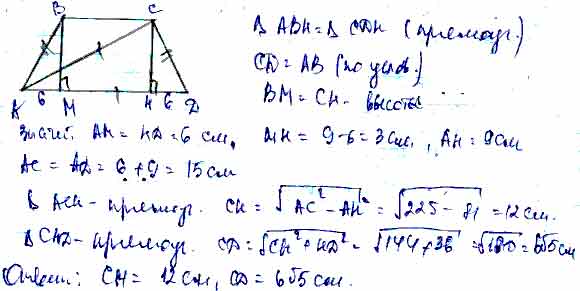 B C
A 6 M H 6 D
Δ ABH = Δ CDH (прямоуг.)
CD = AB (по услов.)
BM = CH - высоты
Значит AM = HD = 6 см, MH = 9-6 = 3 см, AH = 9 см
AC = AD = 6 + 9 = 15 см
Δ ACH - прямоуг. CH = √AC² - AH² = √225 - 81 = 12 см.
Δ CHD - прямоуг. CD = √CH² + HD² = √144 + 36 = √180 = 6√5 см
Ответ: CH = 12 см, CD = 6√5 см.